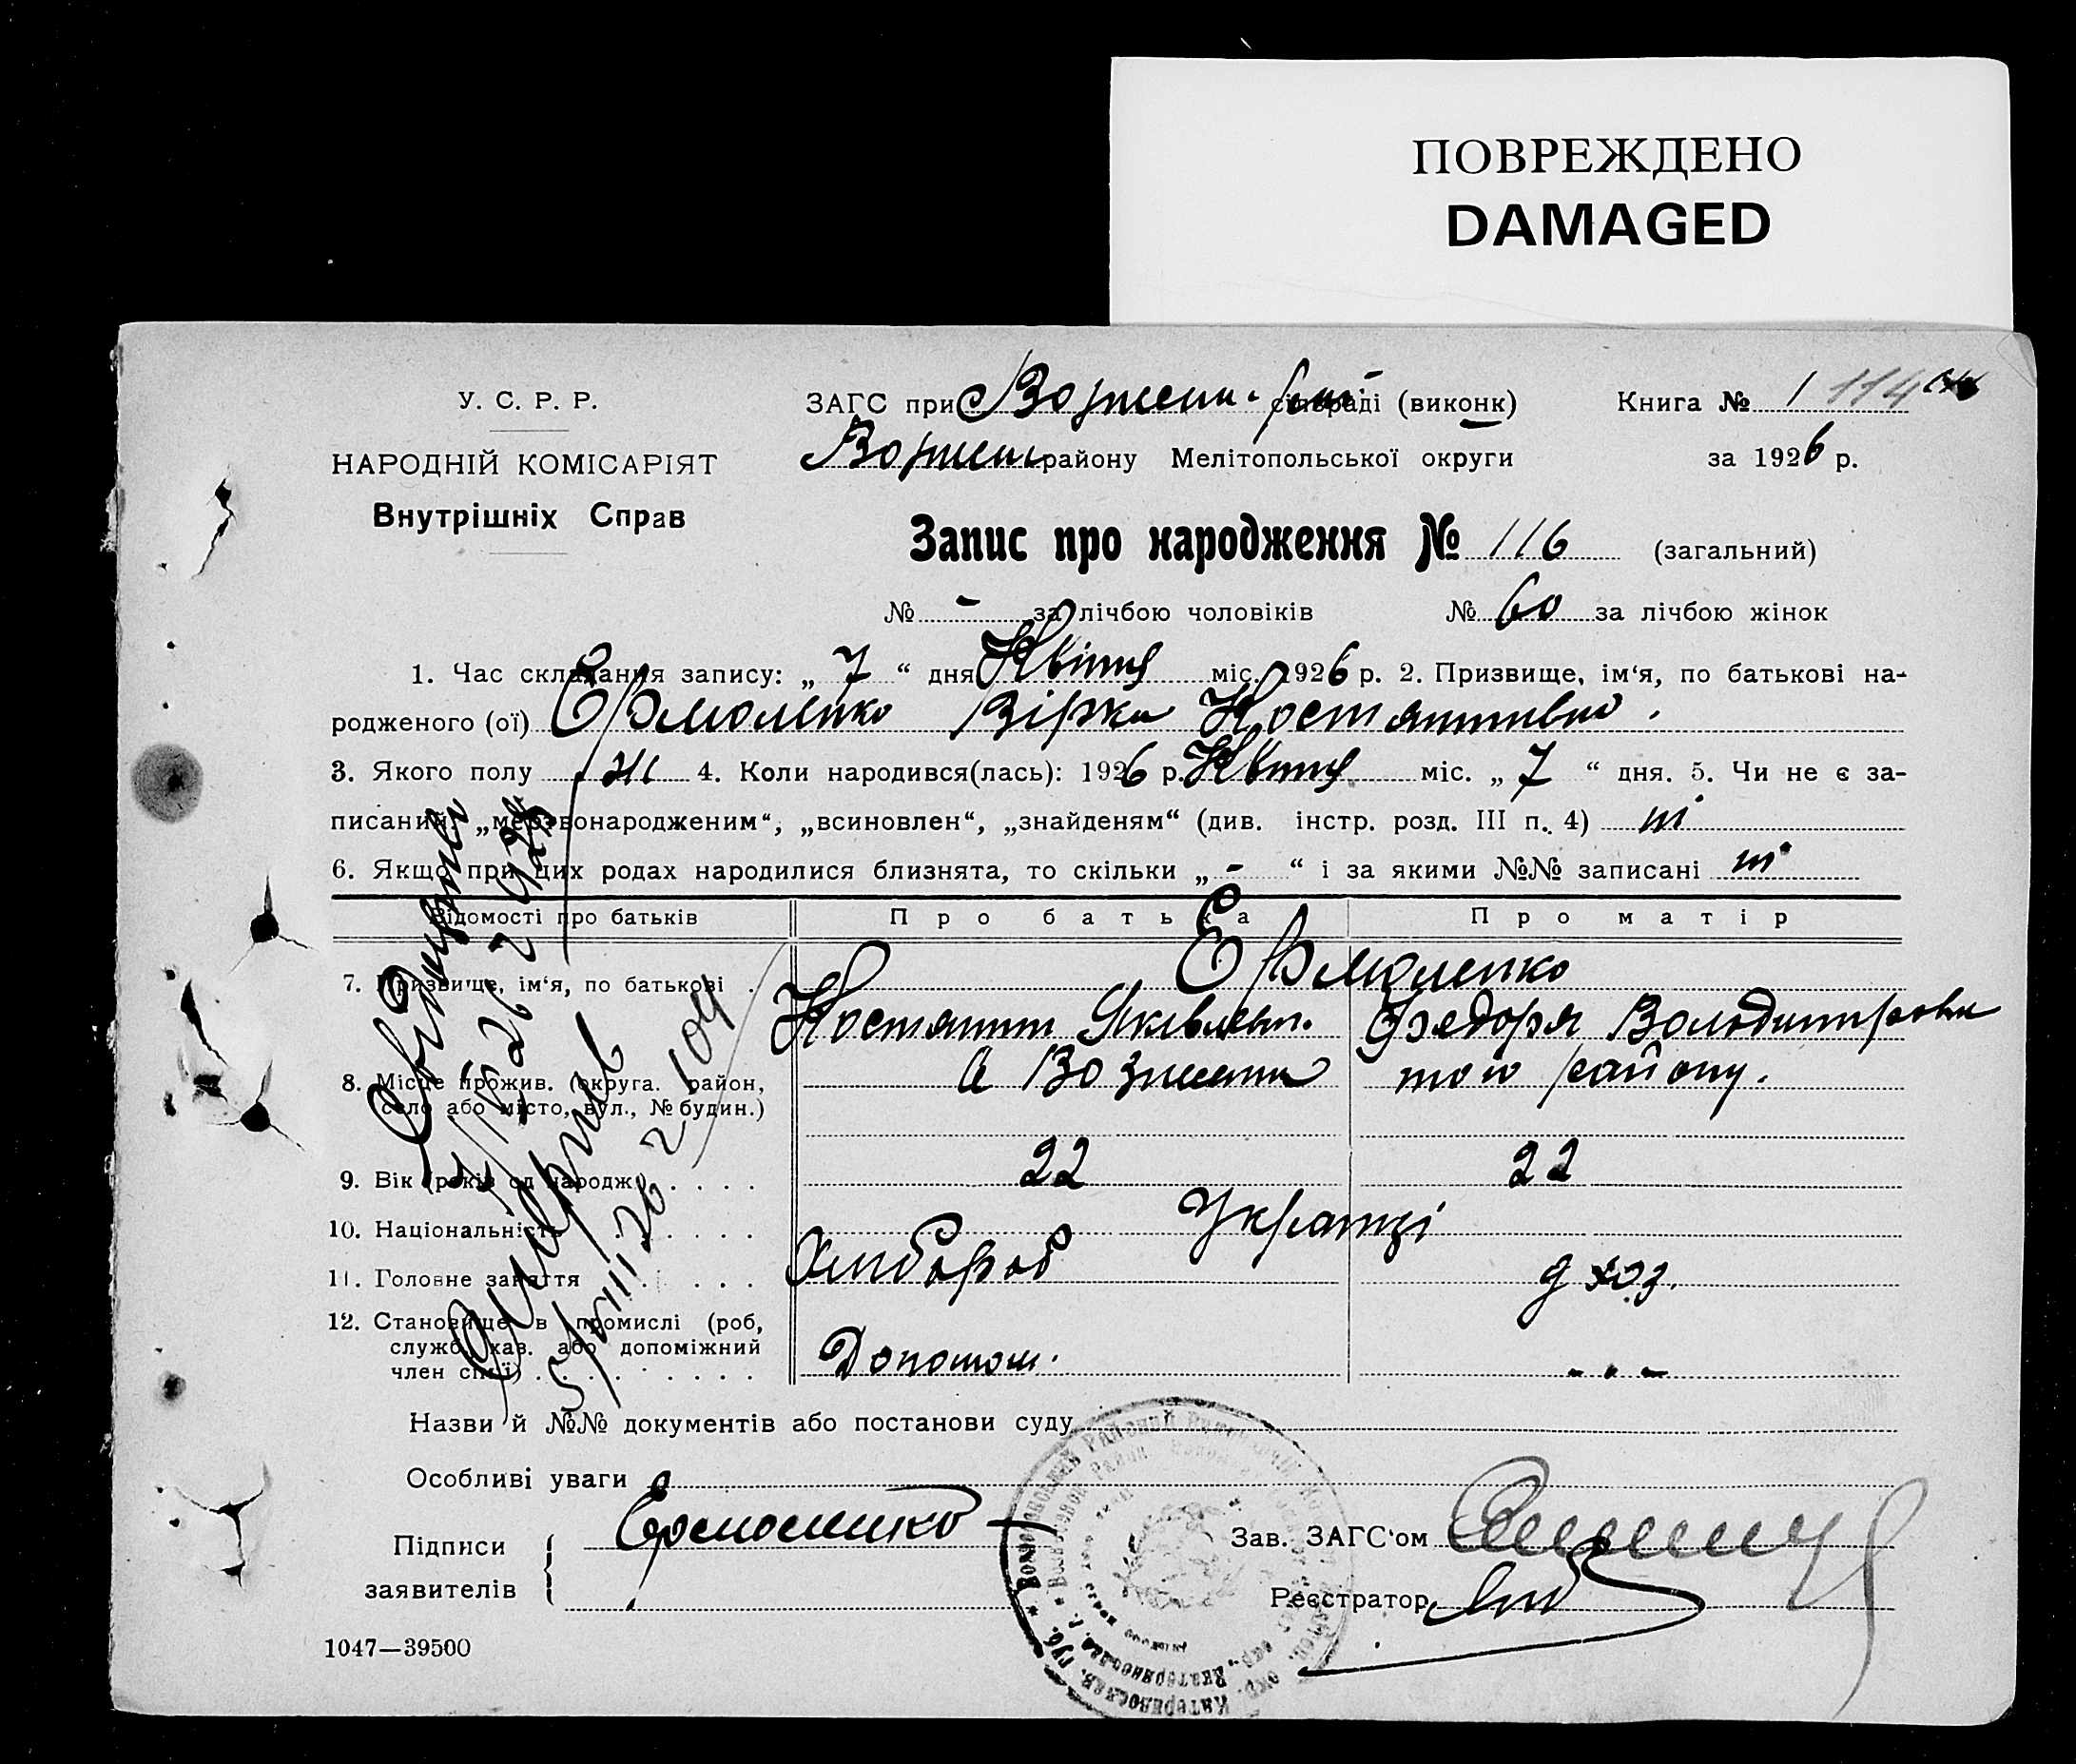 ПОВРЕЖДЕНО
DAMAGED
У. С. Р. Р.
НАРОДНІЙ КОМІСАРІЯТ
Внутрішніх Справ
ЗАГС при сільраді (виконк)
району Мелітопольської округи
Книга № 1 114
за 1926 р.
Запис про народження № 116 (загальний)
№ - за лічбою чоловіків № 60 за лічбою жінок
1. Час складання запису: „ 7 “ дня Квітня міс. 1926 р. 2. Призвище, ім‘я, по батькові на-
родженого (ої) Єрмоленко Вірка Костянтивна.
3. Якого полу ж 4. Коли народився(лась): 1926 р. Квітня міс. „ 7 “ дня. 5. Чи не є за-
писаний „мертвонародженим“, „всиновлен“, „знайденям“ (див. інстр. розд. III п. 4) ні
6. Якщо при цих родах народилися близнята, то скільки „ - “ і за якими №№ записані ні
Відомості про батьків Про батька Про матір
7. Призвище, ім‘я, по батькові . Єрмоленко
Костянтин Яківлевич. Федора Володимировна
8. Місце прожив. (округа. район,
село або місто, вул., № будин.)
с Вознесенка того району.
9. Вік (років од народж.) . . . . 22 22
10. Національність . . . . Українці
11. Головне заняття . . . . Хлібороб д хоз.
12. Становище в промислі (роб,
служб, хаз. або допоміжний
член сім‘ї) . . . . . . . . Допомож. - . -
Назви й №№ документів або постанови суду
Особливі уваги
Підписи
заявителів
Ермоленко
Зав. ЗАГС‘ом
Реєстратор
1047—39500